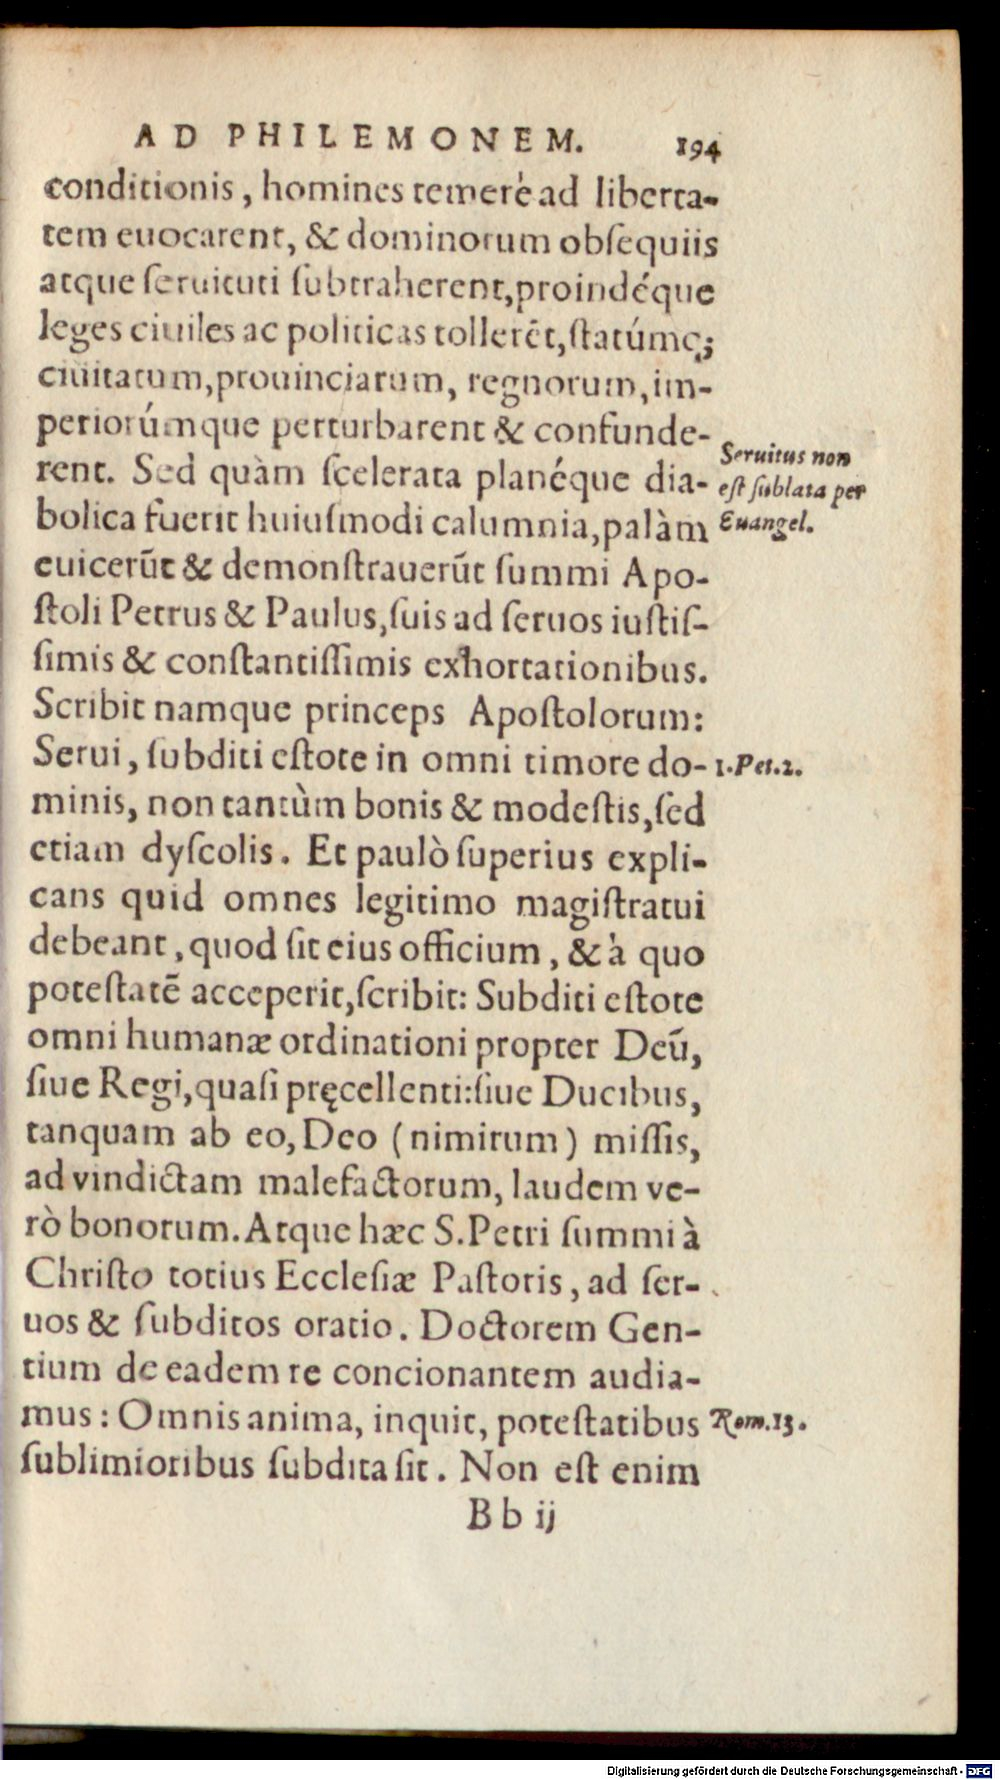 AD PHILEMONEM. 194
conditionis, homines temerè ad liberta-
tem euocarent, & dominorum obſequiis
atque ſeruituti ſubtraherent, proindéque
leges ciuiles ac politicas tollerēt, ſtatúmq;
ciuitatum, prouinciarum, regnorum, im-
periorúmque perturbarent & confunde-
rent. Sed quàm ſcelerata planéque dia-
Seruitus non
eſt ſublata per
Euangel.
bolica fuerit huiuſmodi calumnia, palàm
euicerūt & demonſtrauerūt ſummi Apo-
ſtoli Petrus & Paulus, ſuis ad ſeruos iuſtiſ-
ſimis & conſtantiſſimis exhortationibus.
Scribit namque princeps Apoſtolorum:
Serui, ſubditi eſtote in omni timore do-
1.Pet.2.
minis, non tantùm bonis & modeſtis, ſed
etiam dyſcolis. Et paulò ſuperius expli-
cans quid omnes legitimo magiſtratui
debeant, quod ſit eius officium, & à quo
poteſtatē acceperit, ſcribit: Subditi eſtote
omni humanæ ordinationi propter Deū,
ſiue Regi, quaſi pręcellenti: ſiue Ducibus,
tanquam ab eo, Deo (nimirum) miſſis,
ad vindictam malefactorum, laudem ve-
rò bonorum. Atque hæc S. Petri ſummi à
Chriſto totius Eccleſiæ Paſtoris, ad ſer-
uos & ſubditos oratio. Doctorem Gen-
tium de eadem re concionantem audia-
mus: Omnis anima, inquit, poteſtatibus
Rom.13.
ſublimioribus ſubdita ſit. Non eſt enim
B b ij
Digitalisierung gefördert durch die Deutsche Forschungsgemeinschaft - DFG